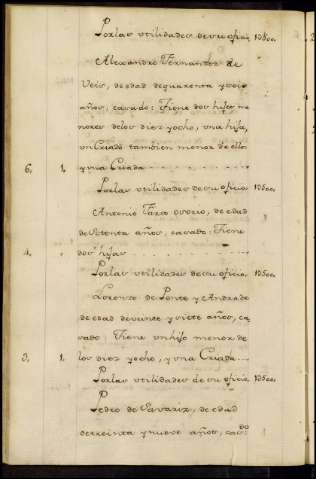 Por las utilidades de su oficio 1050o.
Alexandro Fernandez de
de edad de quarenta y seis
años, casado: Tiene dos hijos me
nores de los diez y ocho, una hija,
un Criado tambien menor de ellos
6, 1, y una Criada
Por las utilidades de su oficio 1050o.
Antonio de edad
de setenta años, casado: Tiene
4, dos hijas
Por las utilidades de su oficio 1050o.
Lorenzo de Ponte y Andrade
de edad de veinte y siete años, ca
sado: Tiene un hijo menor de
3, 1, los diez y ocho, y una Criada
Por las utilidades de su oficio 1050o.
Pedro de de edad
de treinta y nueve años, casdo